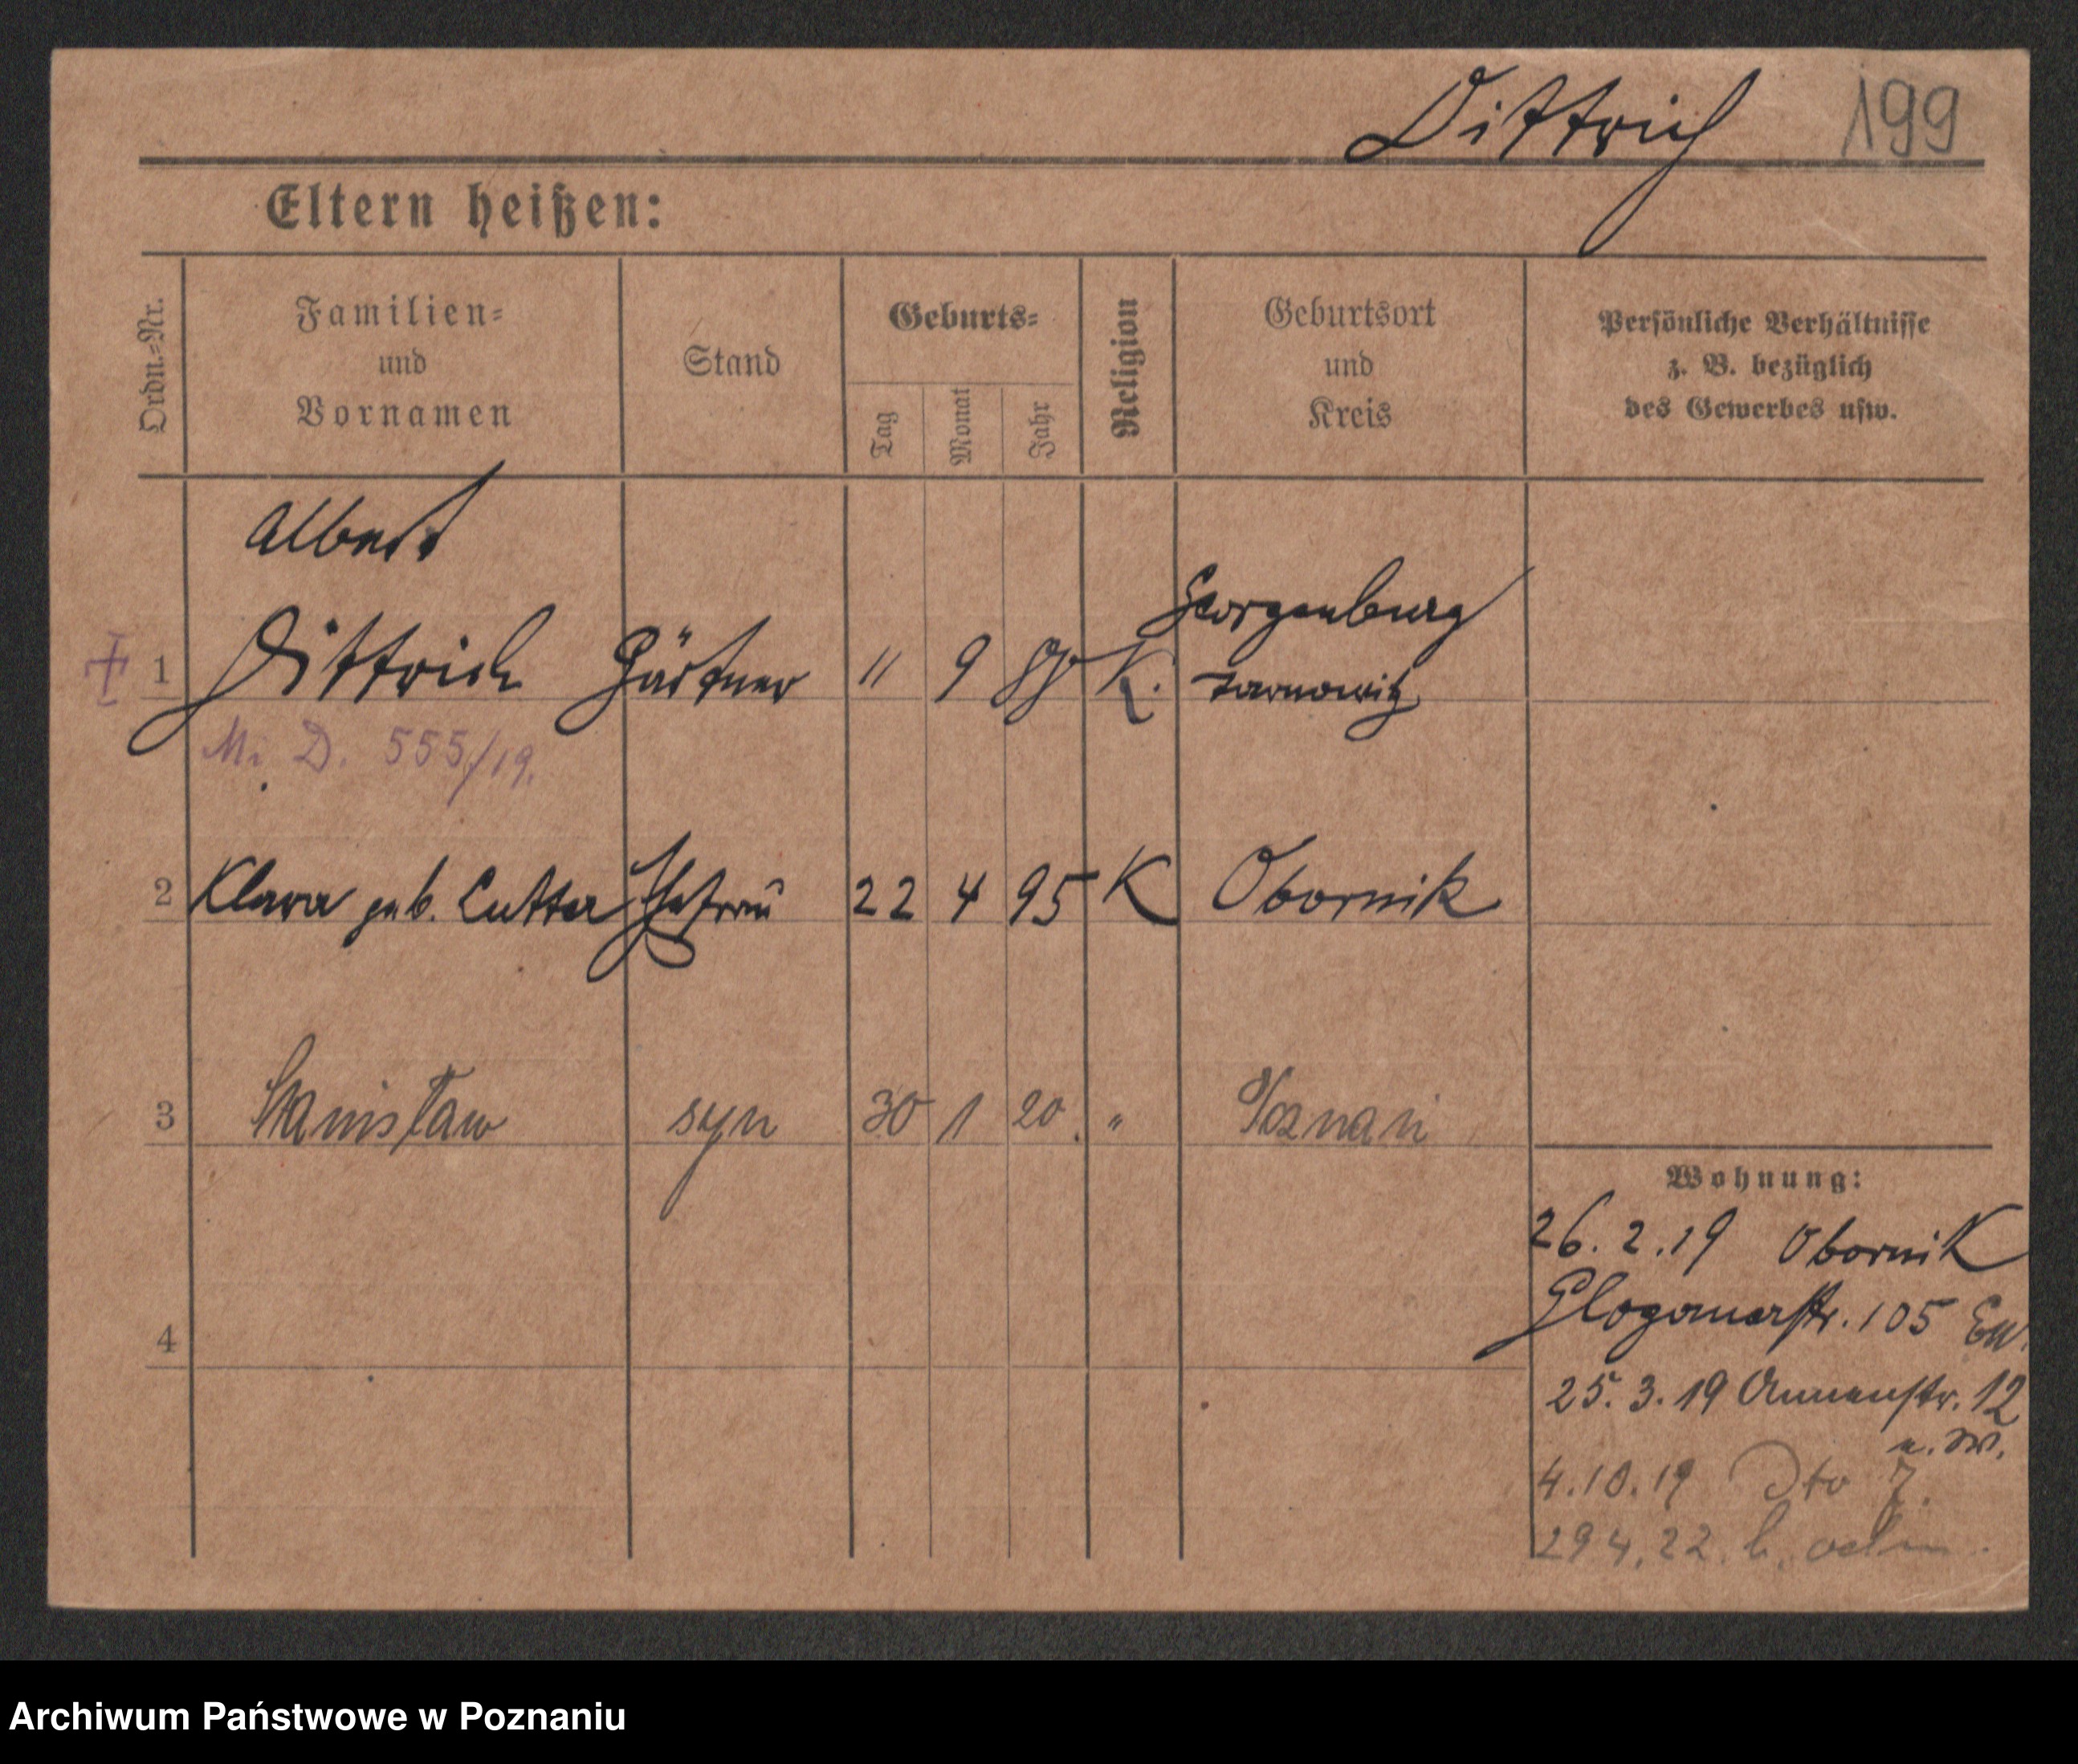 Dittrich 199
Eltern heißen:
Ordn.=Nr.
Familien=
und
Vornamen
Stand
Geburts=
Tag
Monat
Jahr
Religion
Geburtsort
und
Kreis
Persönliche Verhältnisse
z. B. bezüglich
des Gewerbes usw.
Albert
1 Dittrich Gärtner 11 9 K. Georgenburg
Tarnowitz
Mi D. 555/19.
2 Klara geb. Lutter Ehefrau 22 4 95 K Obornik
3 Stanisław syn 30 1 20. " Poznań
4
Wohnung:
26. 2. 19 Obornik
Glogauerstr. 105
25. 3. 19 Annenstr. 12
4. 10. 19 Dto 7.
29 4. 22
Archiwum Państwowe w Poznaniu